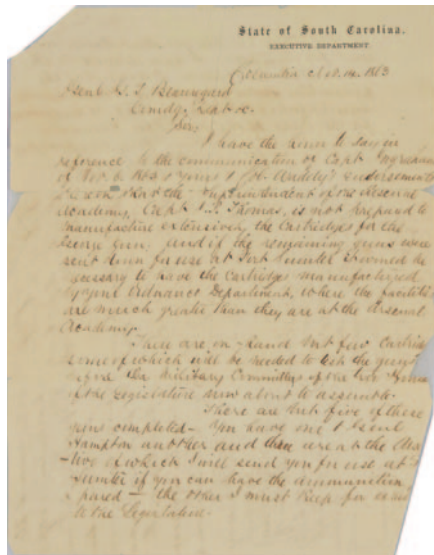 State of South Carolina.
EXECUTIVE DEPARTMENT
Columbia Nov. 14. 1863
Genl G. T. Beauregard
Comdg. Dept &c.
Sir,
I have the honor to say in
reference to the communication of Capt.
of Nov. 6. 1863 & yours & Col. endorsements
that the Superintendent of the Arsenal
Academy, Capt. J. P. Thomas, is not prepared to
manufacture extensively the Cartridges for the
gun, and if the remaining guns were
sent down for use at Fort Sumter it would be
necessary to have the Cartridges manufactured
by your Ordnance Department, where the facilities
are much greater than they are at the Arsenal
Academy.
There are on hand but few Cartridges
some of which will be needed to test the guns
before the Military Committees of the two Houses
of the Legislature now about to assemble.
There are but five of these
guns completed - You have one & Genl
Hampton another and three are at the
- two of which I will send you for use at
Sumter if you can have the ammunition
prepared - the other I must keep for
to the Legislature.